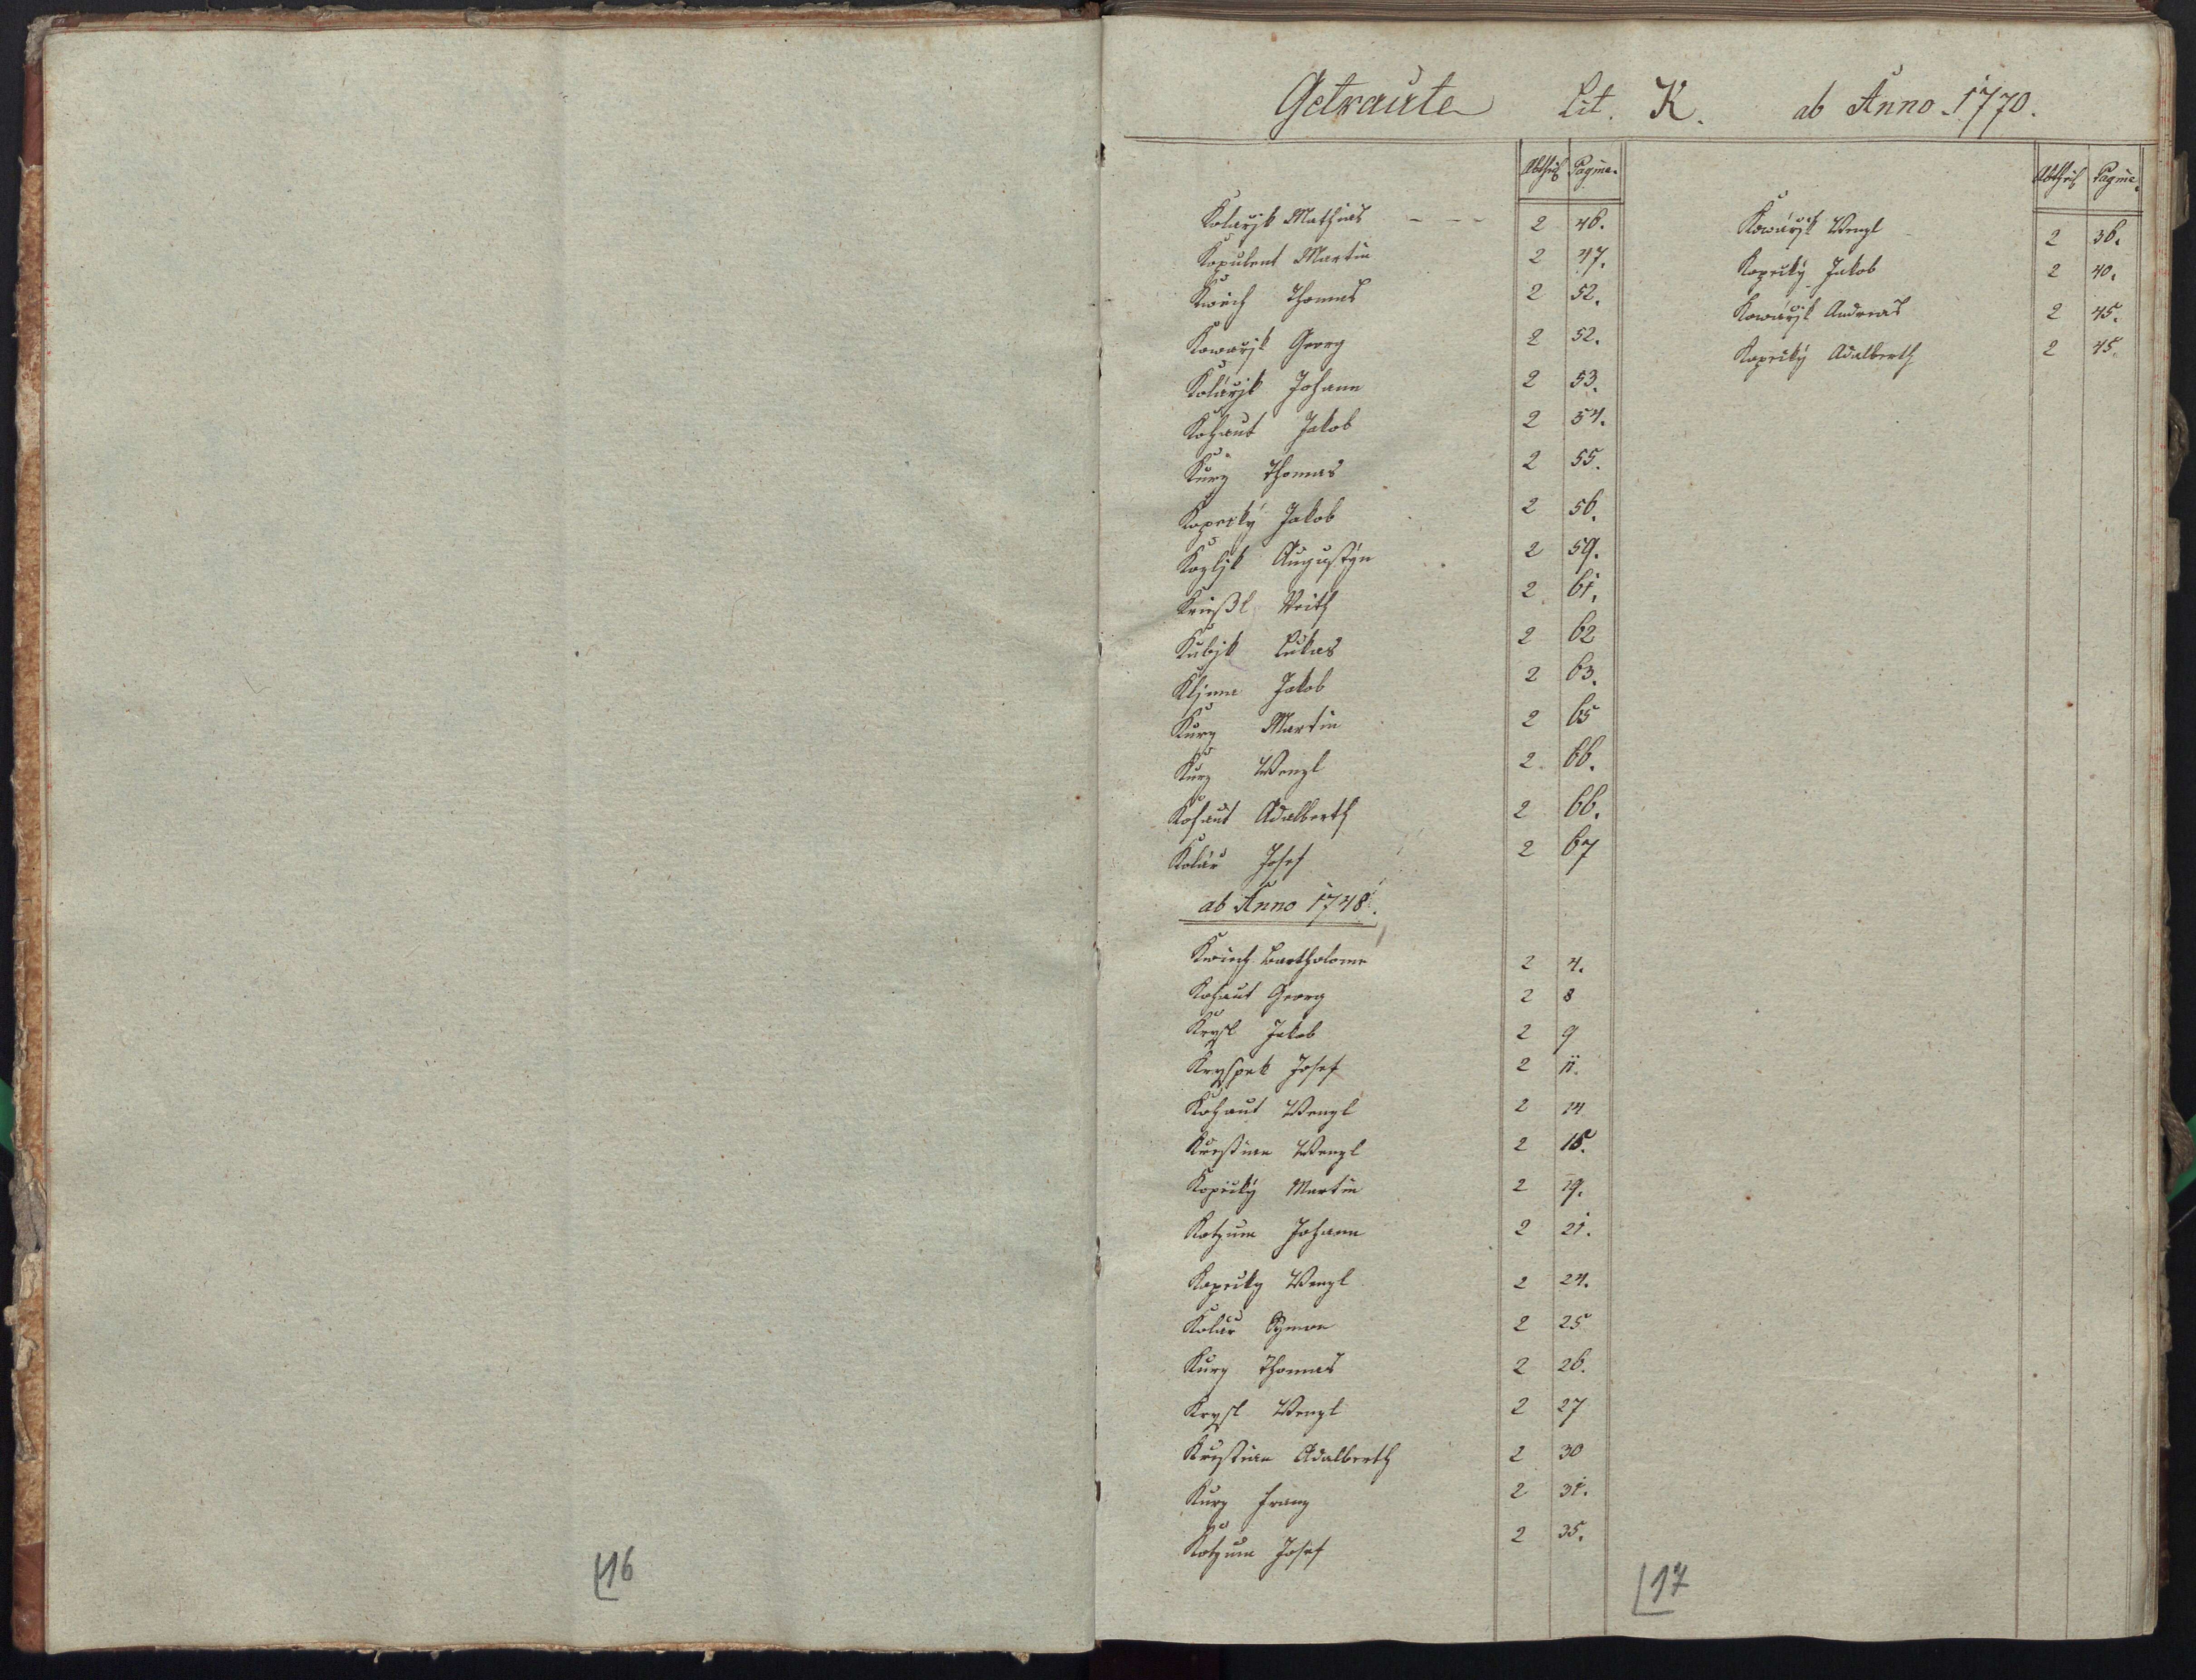 Getraute Lit. K. ab Anno 1770.
Abtheil Pagina.
Kolarjk Mathias - - - 2 46.
Kopulent Martin 2 47.
Kwich Thomas 2 52.
Kowarjk Georg 2 52.
Kolarjk Johann 2 53.
Kohaut Jakob 2 54.
Kurz Thomas 2 55.
Kopecký Jakob 2 56.
Kozljk Augustyn 2 59.
Veith 2 61.
Kubjk Lukas 2 62
Kljma Jakob 2 63.
Kurz Martin 2 65
Kurz Wenzl 2 66.
Kohaut Adalberth 2 66.
Kolar Josef 2 67
ab Anno 1748.
Kwich Bartholome 2 4.
Kohaut Georg 2 8
Krysl Jakob 2 9
Kryspek Josef 2 11.
Kohaut Wenzl 2 14
Kristian Wenzl 2 15.
Kopecký Martin 2 19.
Kotzum Johann 2 21.
Kopecky Wenzl 2 24.
Kolar Symon 2 25
Kurz Thomas 2 26.
Krysl Wenzl 2 27
Kristian Adalberth 2 30
Kurz Franz 2 31.
Kotzum Josef 2 35.
Abtheil Pagina.
Kowarjk Wenzl 2 36.
Kopecký Jakob 2 40.
Kowarjk Andreas 2 45.
Kopecký Adalberth 2 45.
16
17